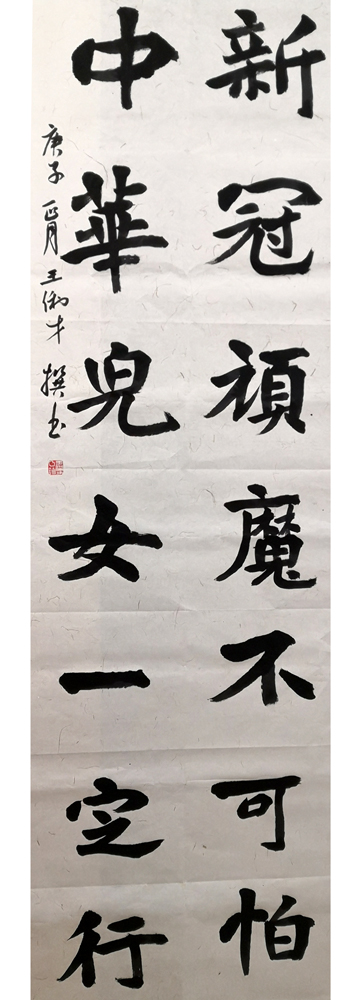 新冠頑魔不可怕
中華兒女一定行
庚子正月王俐才撰书